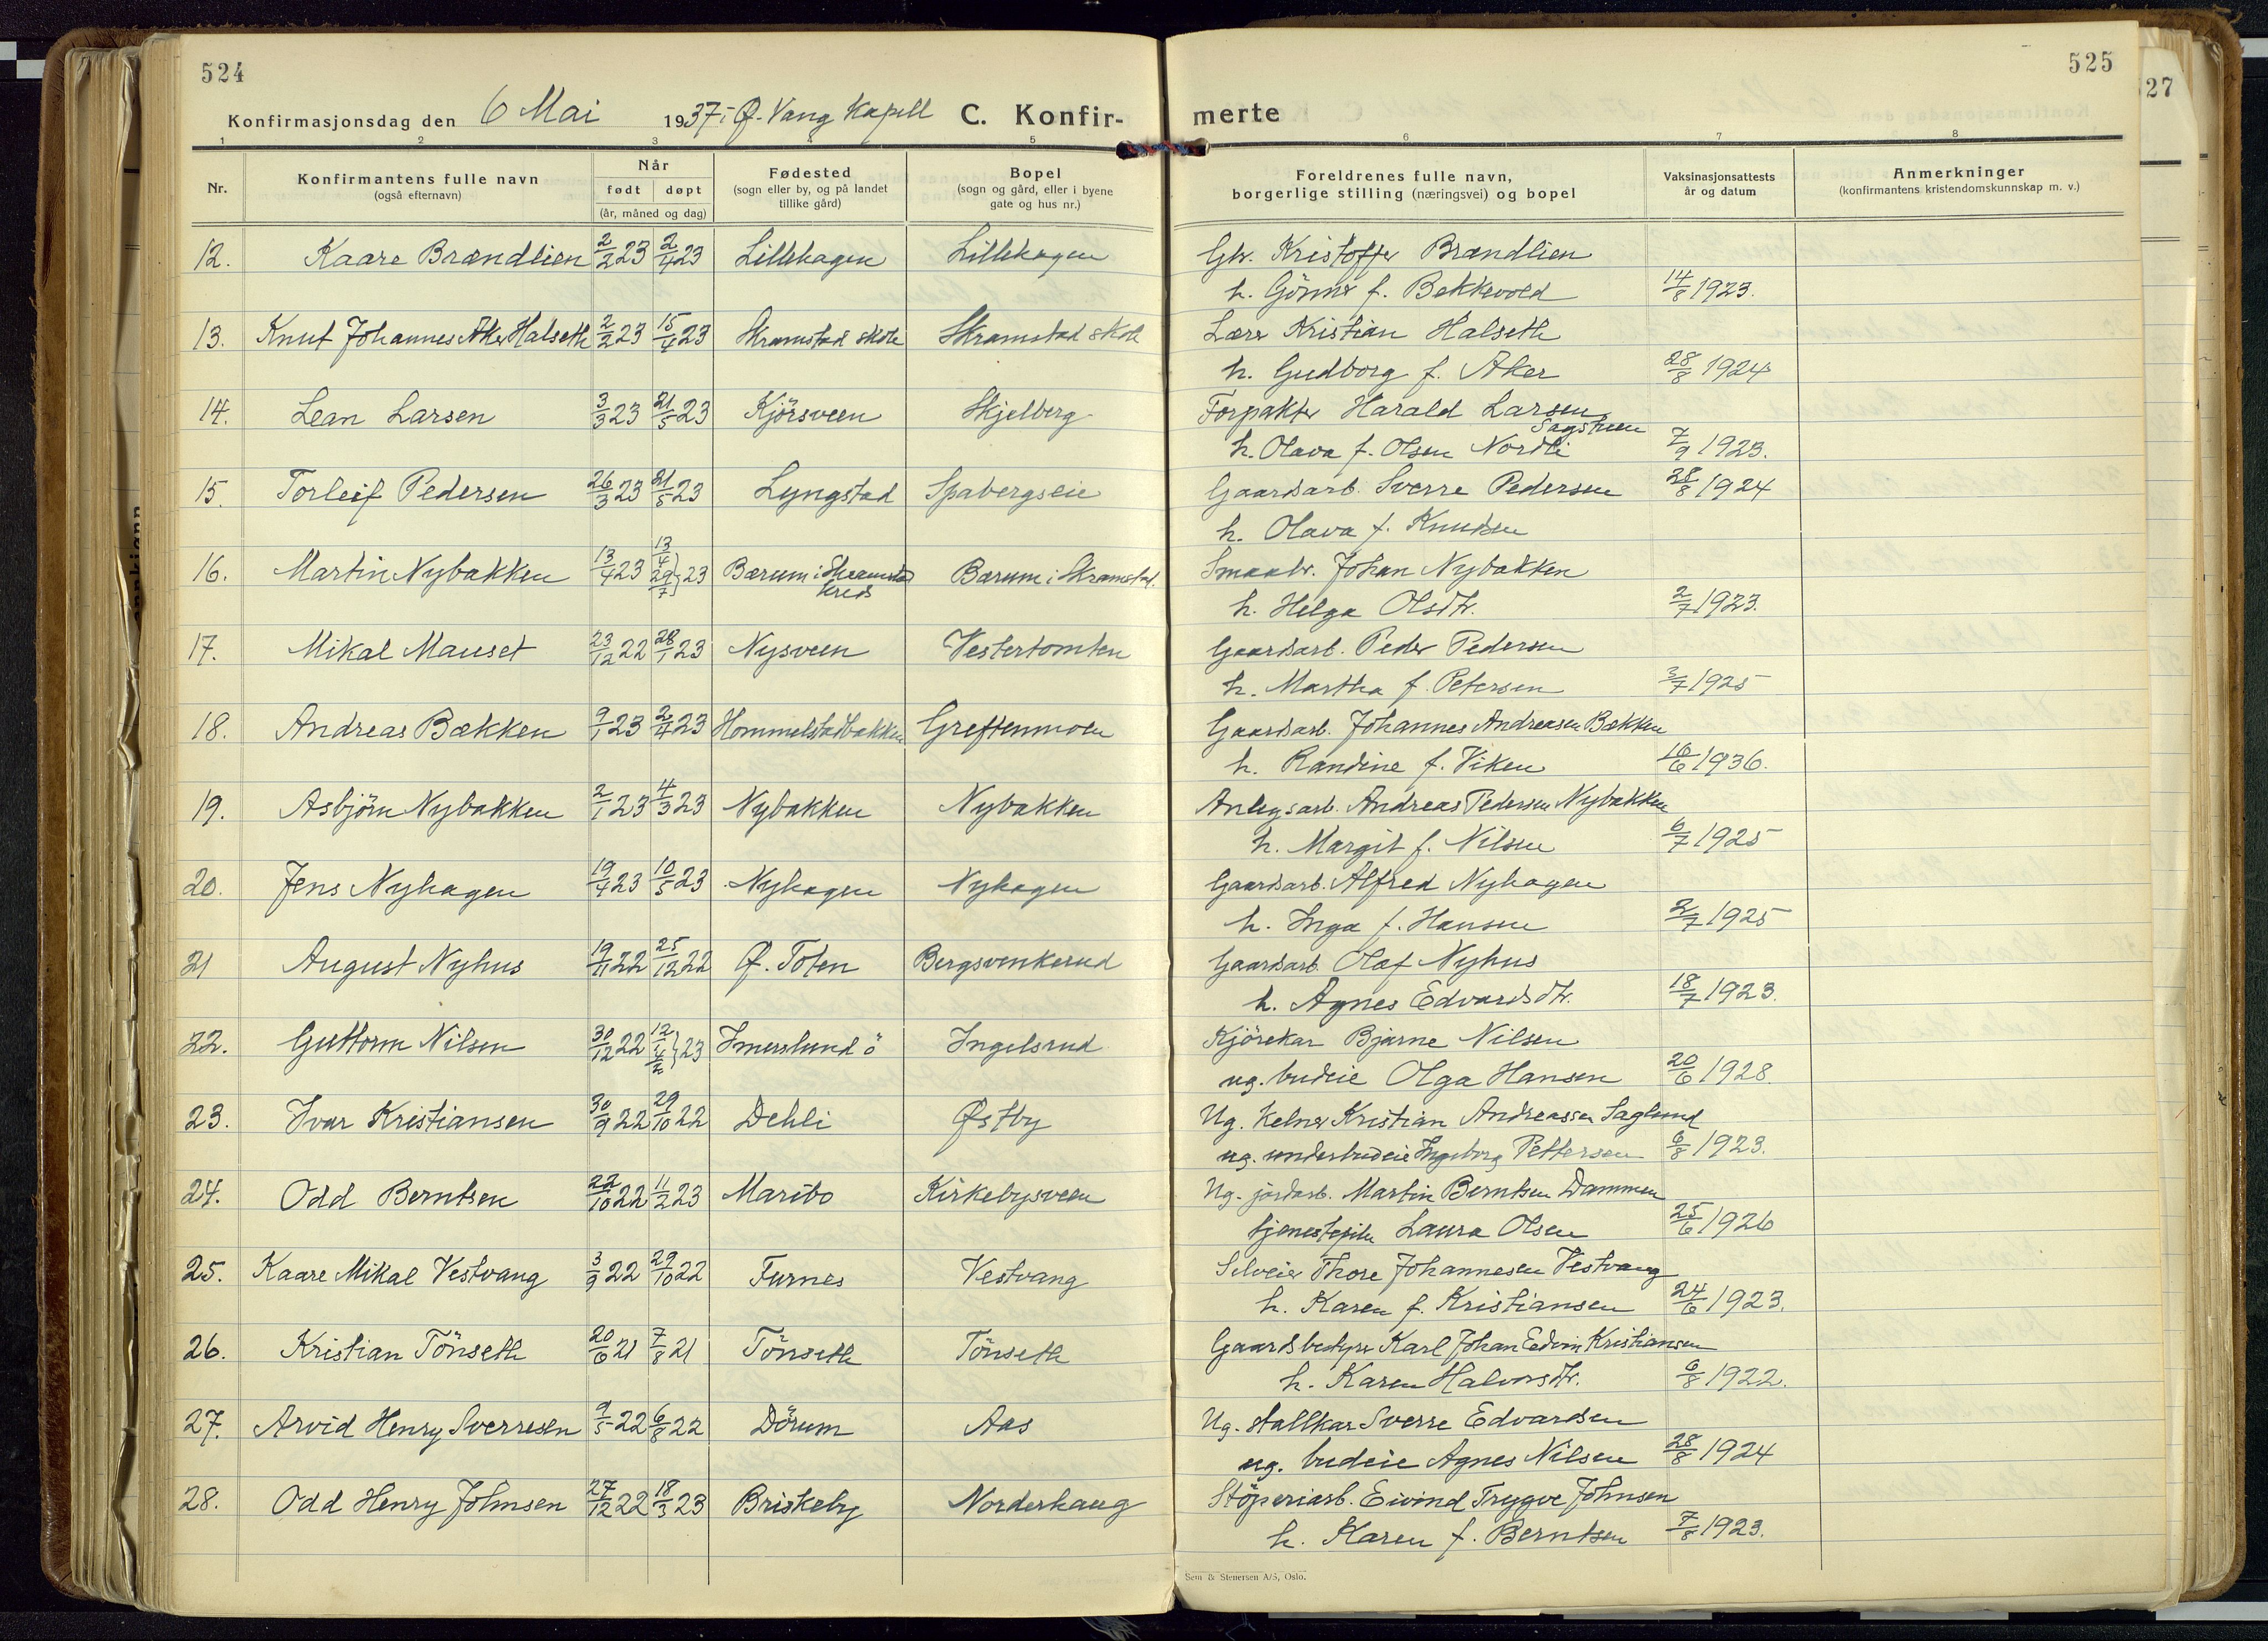 524
Konfirmasjonsdag den 6 Mai 1937 i Ø. Vang Kapell C. Konfir-
1 2 3 4 5
Nr. Konfirmantens fulle navn (også efternavn) Når født døpt (år, måned og dag) Fødested (sogn eller by, og på landet tillike gård) Bopel (sogn og gård, eller i byene gate og hus nr.)
12. Kaare Brændlien 2/2 23 2/4 23 Lillehagen Lillehagen
13. Knut Johannes Aker Halseth 2/2 23 15/4 23 Skramstad skole Skramstad skole
14. Lean Larsen 3/3 23 21/5 23 Kjörsveen Skjelberg
15. Torleif Pedersen 26/3 23 21/5 23 Lyngstad Spabergseie
16. Martin Nybakken 13/4 23 13/4 29/7 } 23 Bærum i Skramstad kreds Bærum i Skramstad.
17. Mikal Mauset 23/12 22 28/1 23 Nysveen Vestertomten
18. Andreas Bækken 9/1 23 2/4 23 Hommelstadbakken Greftenmoen
19. Asbjörn Nybakken 2/1 23 4/3 23 Nybakken Nybakken
20. Jens Nyhagen 19/4 23 10/5 23 Nyhagen Nyhagen
21 August Nyhus 19/11 22 25/12 22 Ø. Toten Bergsvenkerud
22. Guttorm Nilsen 30/12 22 12/1 4/2 } 23 Imerslund ö Ingelsrud
23. Ivar Kristiansen 30/9 22 29/10 22 Dehli Østby
24. Odd Berntsen 22/10 22 11/2 23 Maribo Kirkebysveen
25. Kaare Mikal Vestvang 3/9 22 29/10 22 Furnes Vestvang
26. Kristian Tönseth 20/6 21 7/8 21 Tönseth Tönseth
27. Arvid Henry Sverresen 9/5 22 6/8 22 Dörum Aas
28. Odd Henry Johnsen 27/12 22 18/3 23 Briskeby Norderhaug
525
27
merte
6 7 8
Foreldrenes fulle navn, borgerlige stilling (næringsvei) og bopel Vaksinasjonsattests år og datum Anmerkninger (konfirmantens kristendomskunnskap m. v.)
Gbr. Kristoffer Brændlien
h. Gönner f. Bekkevold 14/8 1923.
Lærer Kristian Halseth
h. Gudborg f. Aker 28/8 1924
Forpakter Harald Larsen
h. Olava f. Olsen Nordli 7/9 1923.
Gaardsarb. Sverre Pedersen 28/8 1924
h. Olava f. Knudsen
Smaabr. Johan Nybakken
h. Helga Olsdtr. 2/7 1923.
Gaardsarb. Peder Pedersen
h. Martha f. Petersen 3/7 1925
Gaardsarb. Johannes Andreasen Bækken
h. Randine f. Viken 16/6 1936.
Anlegsarb. Andreas Pedersen Nybakken
h. Margit f. Nilsen 6/7 1925
Gaardsarb. Alfred Nyhagen
h. Inga f. Hansen 2/7 1925
Gaardsarb. Olaf Nyhus
h. Agnes Edvardsdtr. 18/7 1923.
Kjörekar Bjarne Nilsen
ug. budeie Olga Hansen 20/6 1928.
Ug. Kelner Kristian Andreassen Saglund
ug. underbudeie Ingeborg Pettersen 6/8 1923.
Ug. jordarb. Martin Berntsen Dammen
tjenestepike Laura Olsen 25/6 1926
Selveier Thore Johannesen Vestvang
h. Karen f. Kristiansen 24/6 1923.
Gaardsbestyrer Karl Johan Edvin Kristiansen
h. Karen Halvorsdtr. 6/8 1922.
Ug. stallkar Sverre Edvardsen
ug. budeie Agnes Nilsen 28/8 1924
Stöperiarb. Eivind Trygve Johnsen
h. Karen f. Berntsen 7/8 1923.
Sem & Stenersen A/S, Oslo.